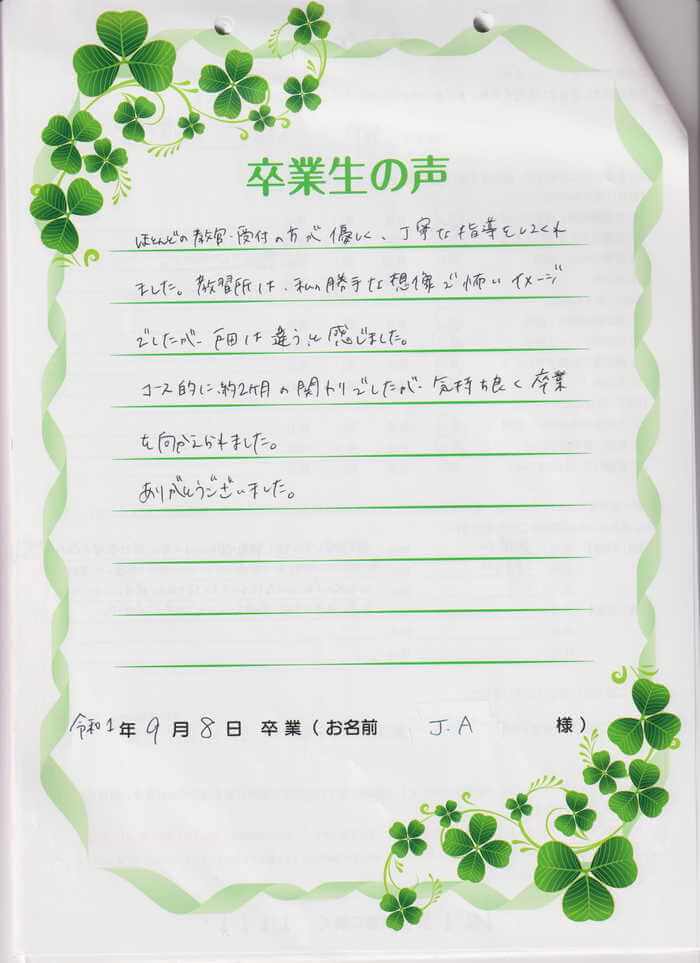 卒業生の声
ほとんどの教官・受付の方が優しく、丁寧な指導をしてくれ
ました。教習所は、私の勝手な想像で怖いイメージ
でしたが、戸田は違うと感じました。
コース的に約2ヶ月の関わりでしたが、気持ち良く卒業
を向かえられました。
ありがとうございました。
令和1年9月8日 卒業(お名前 J.A 様)